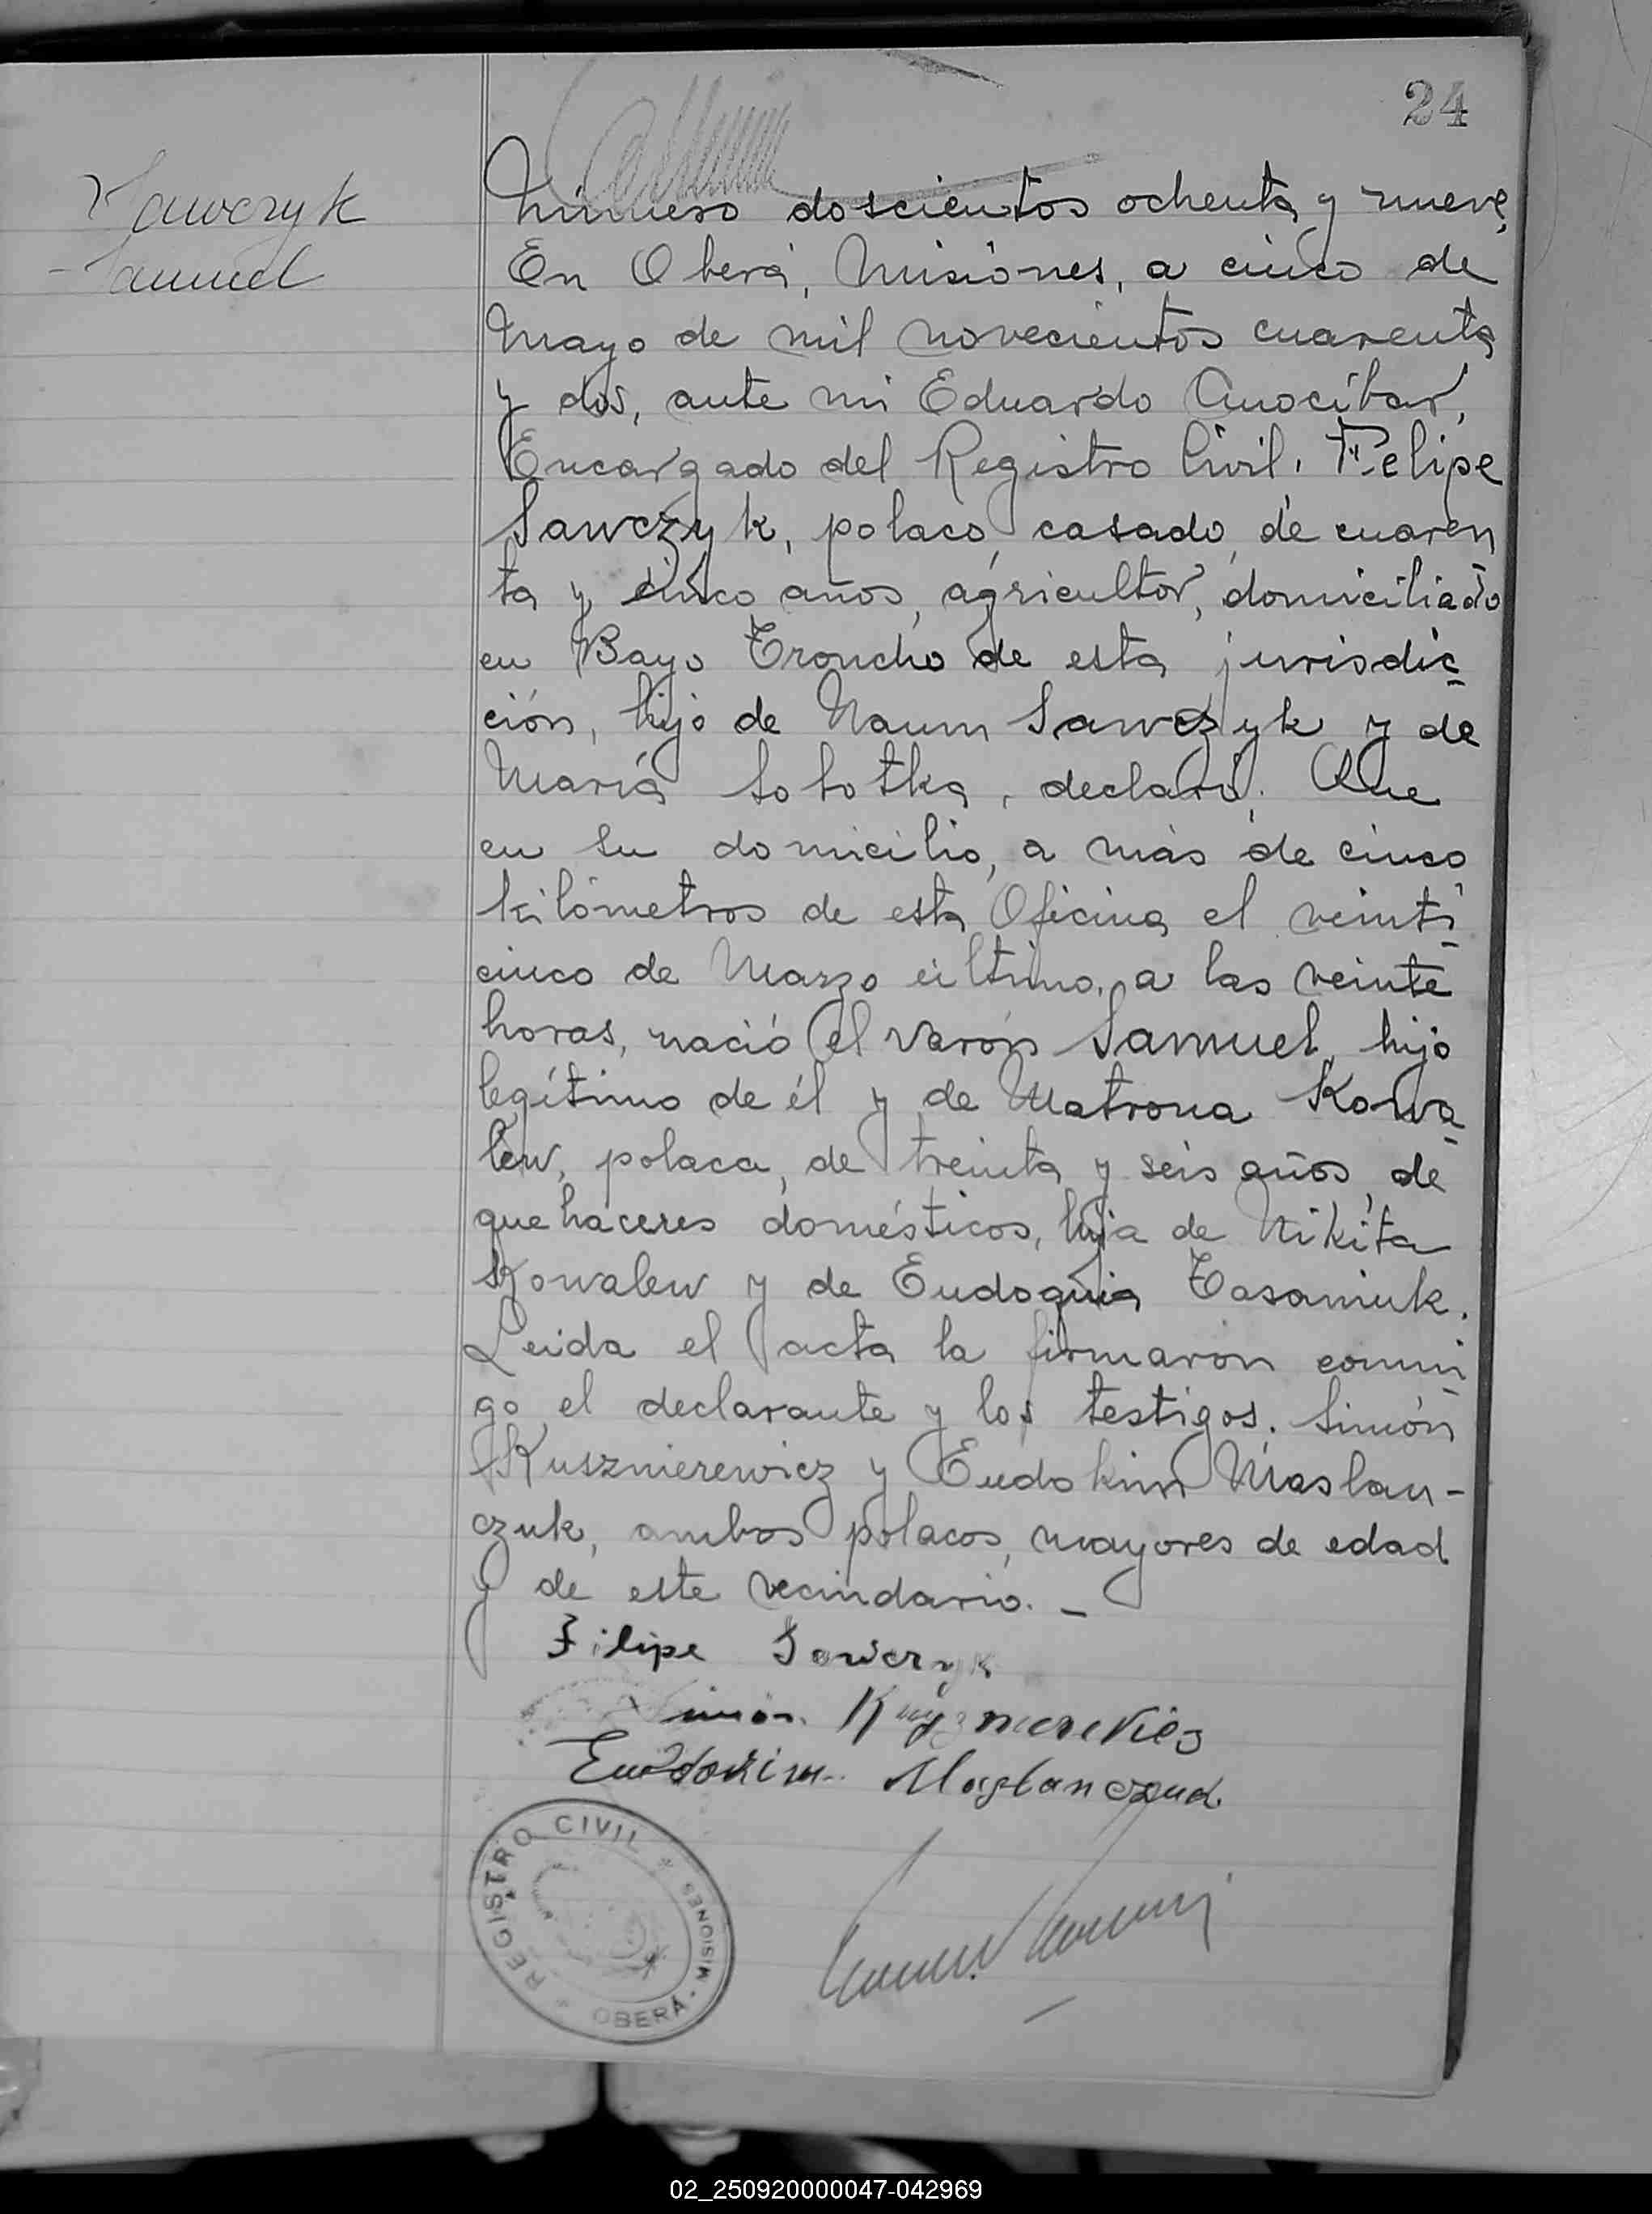 24
Sawczyk
Samuel
Número doscientos ochenta y nueve
En Oberá, Misiones, a cinco de
Mayo de mil novecientos cuarenta
y dos, ante mi Eduardo Anocíbar,
Encargado del Registro Civil, Felipe
Sawczyk, polaco, casado, de cuaren
ta y cinco años, agricultor, domiciliado
en Bayo Troncho de esta jurisdic
ción, hijo de Naum Sawczyk y de
María Sobotka, declaró: Que
en su domicilio, a más de cinco
kilómetros de esta Oficina el veinti
cinco de Marzo último, a las veinte
horas, nació el varón Samuel, hijo
legítimo de él y de Matrona Kowa
lew, polaca, de treinta y seis años, de
quehaceres domésticos, hija de Nikita
Kowalew y de Eudoquia Tasaniuk.
Leida el acta la firmaron conmi
go el declarante y los testigos. Simón
Kuszmerewicz y Eudokim Maslan-
czuk, ambos polacos, mayores de edad
y de este vecindario. -
Filipe Sawczyk
Simon
Eudokim
REGISTRO CIVIL * OBERÁ - MISIONES *
02_250920000047-042969